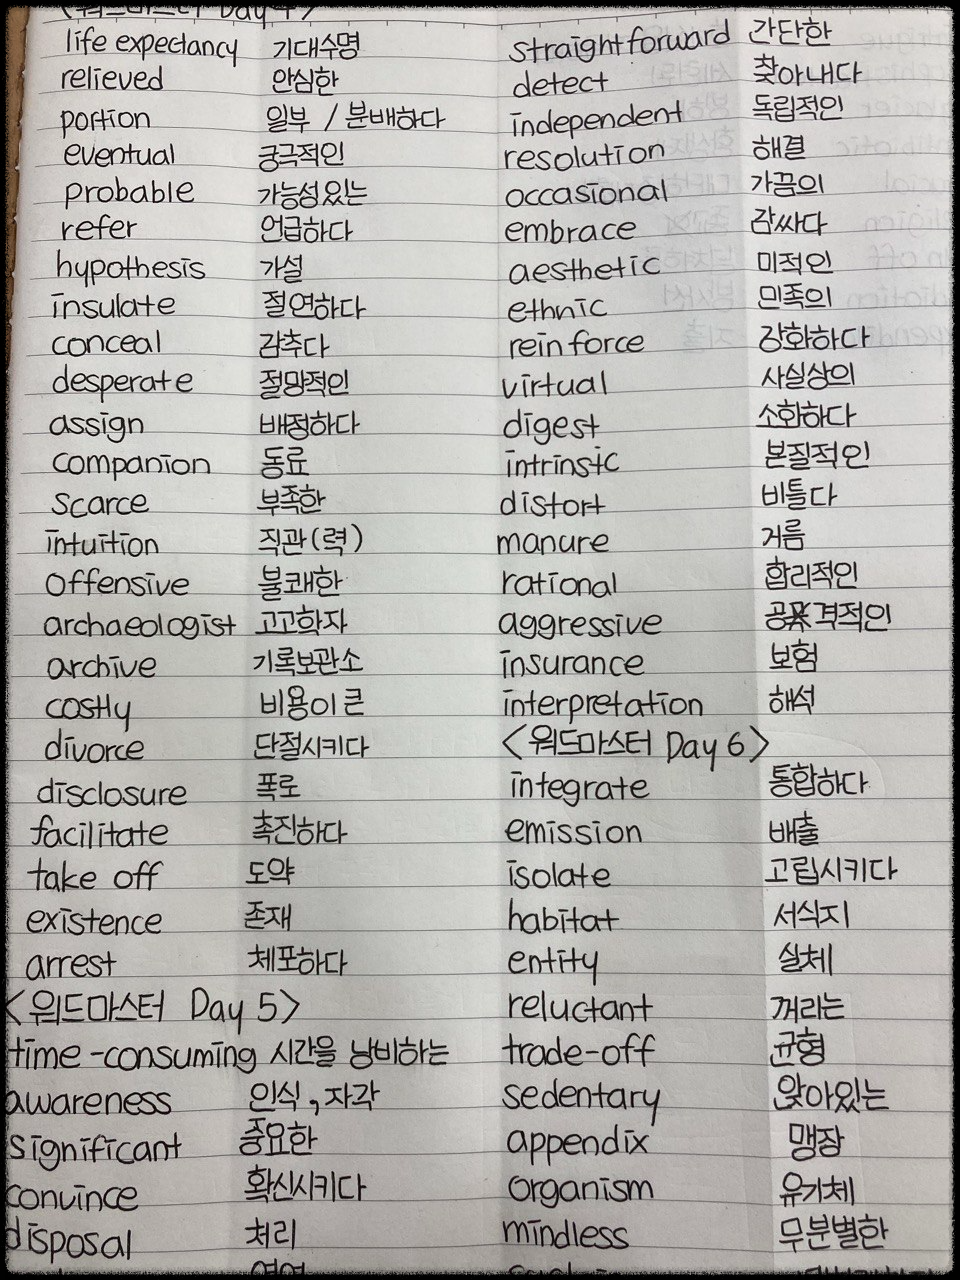 <워드마스터 Day 4>
life expectancy 기대수명
relieved 안심한
portion 일부 / 분배하다
eventual 궁극적인
probable 가능성있는
refer 언급하다
hypothesis 가설
insulate 절연하다
conceal 감추다
desperate 절망적인
assign 배정하다
companion 동료
scarce 부족한
intuition 직관(력)
offensive 불쾌한
archaeologist 고고학자
archive 기록보관소
costly 비용이 큰
divorce 단절시키다
disclosure 폭로
facilitate 촉진하다
take off 도약
existence 존재
arrest 체포하다
<워드마스터 Day 5>
time-consuming 시간을 낭비하는
awareness 인식, 자각
significant 중요한
convince 확신시키다
disposal 처리
straightforward 간단한
detect 찾아내다
independent 독립적인
resolution 해결
occasional 가끔의
embrace 감싸다
aesthetic 미적인
ethnic 민족의
reinforce 강화하다
virtual 사실상의
digest 소화하다
intrinsic 본질적인
distort 비틀다
manure 거름
rational 합리적인
aggressive 공격적인
insurance 보험
interpretation 해석
<워드마스터 Day 6>
integrate 통합하다
emission 배출
isolate 고립시키다
habitat 서식지
entity 실체
reluctant 꺼리는
trade-off 균형
sedentary 앉아있는
appendix 맹장
organism 유기체
mindless 무분별한